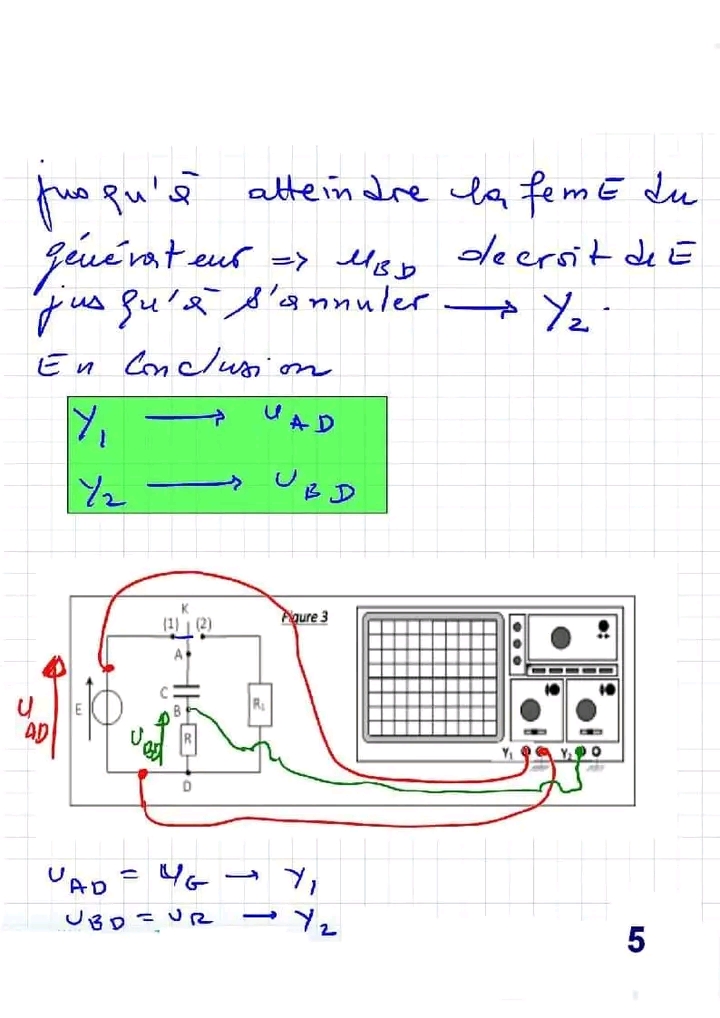 jusqu'à atteindre la fem E du
générateur => uBD decroit de E
jusqu'à s'annuler → Y2.
En Conclusion
Y1 → uAD
Y2 → UBD
Figure 3
K
(1) (2)
A
C
B
E
R
R1
D
UAD
UBD
Y1 Y2
UAD = UG → Y1
UBD = UR → Y2
5